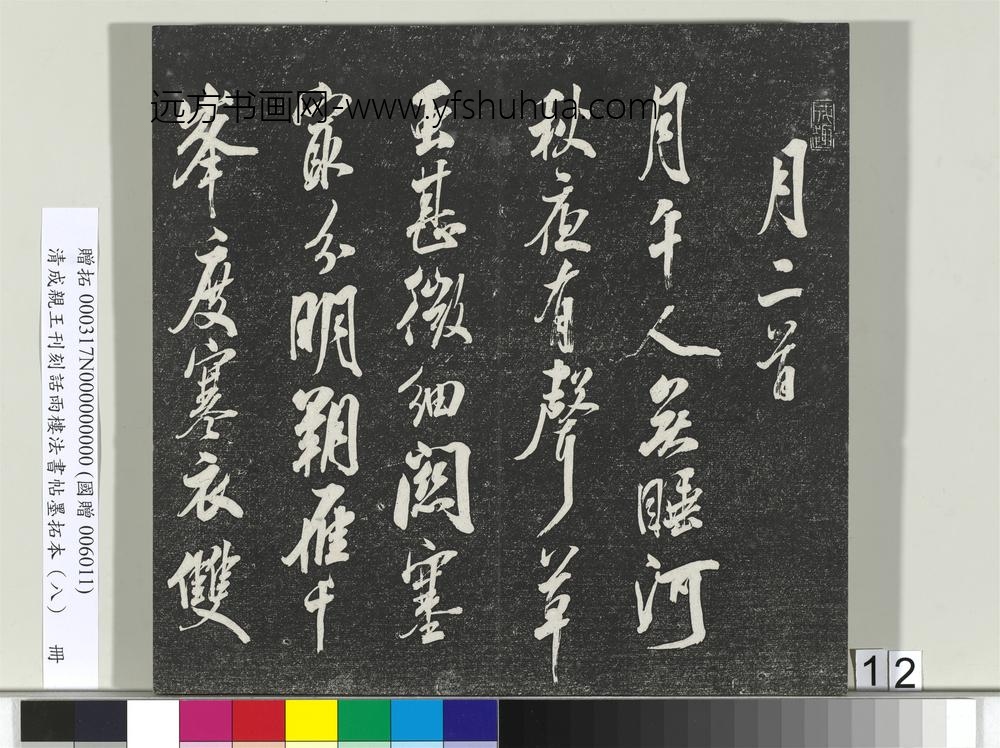 月二首
月午人无睡河
秋夜有聲草
虫甚微細關塞
寂分明朔雁千
峯度寒衣雙
远方书画网-www.yfshuhua.com
贈拓 000317N000000000 (國贈 006011)
清成親王刊刻話雨樓法書帖墨拓本（八） 冊
12